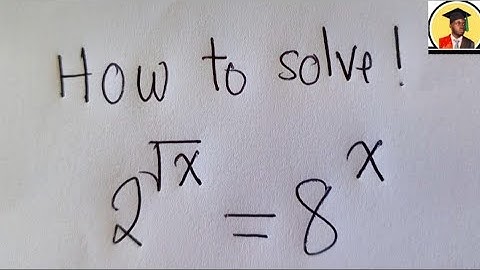 How to solve!
2^√x = 8^x